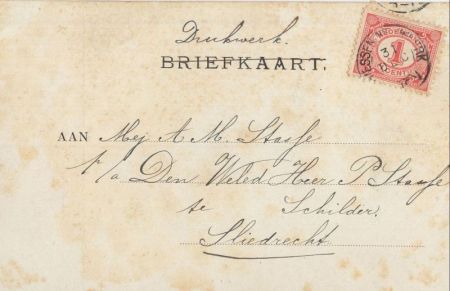 Drukwerk.
BRIEFKAART.
AAN Mej A. M. Stasse
p/a Den Weled Heer P Stasse
te Schilder.
Sliedrecht
1
CENT